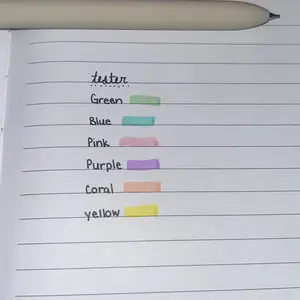 tester
Green
Blue
Pink
Purple
Coral
yellow